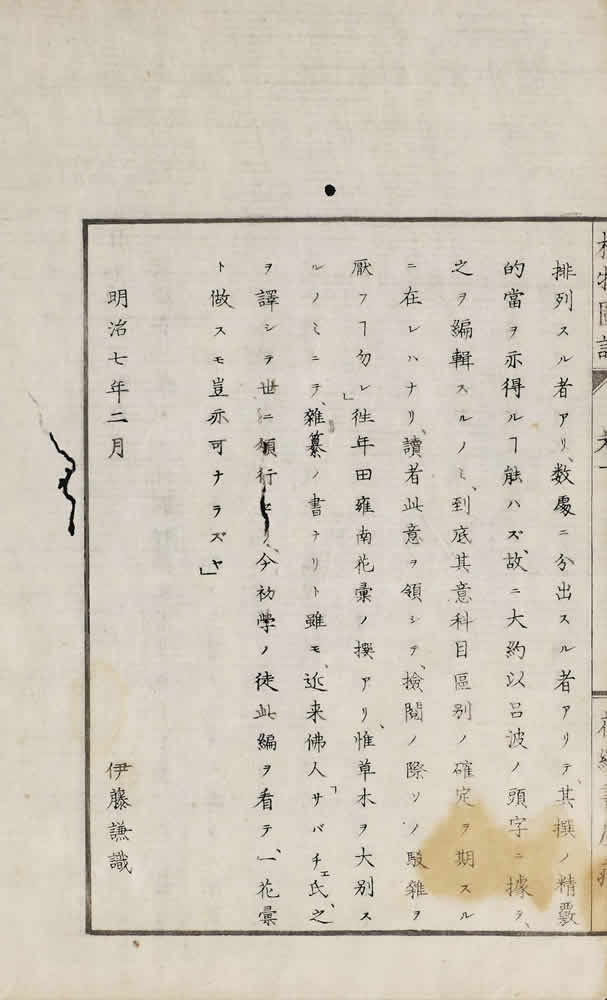 排列スル者アリ、数處ニ分出スル者アリテ、其撰ノ精覈
的當ヲ亦得ルヿ能ハズ、故ニ大約以呂波ノ頭字ニ據テ、
之ヲ編輯スルノミ、到底其意科目區别ノ確定ヲ期スル
ニ在レハナリ、讀者此意ヲ領シテ、撿閲ノ際ソノ駁雜ヲ
厭フヿ勿レ」徃年田雍南花彙ノ撰アリ、惟草木ヲ大别ス
ルノミニテ、雜纂ノ書ナリト雖モ、近来佛人「サバチェ氏、之
ヲ譯シテ世ニ頒行セリ、今初學ノ徒此編ヲ看テ、一花彙
ト做スモ豈亦可ナラズヤ」
明治七年二月
伊藤謙識